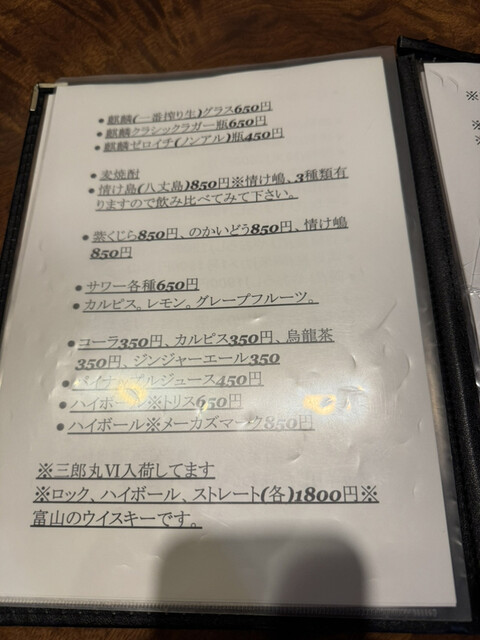 • 麒麟(一番搾り生)グラス650円
• 麒麟クラシックラガー瓶650円
• 麒麟ゼロイチ(ノンアル)瓶450円
• 麦焼酎
• 情け島(八丈島)850円※情け嶋、3種類有
りますので飲み比べてみて下さい。
• 紫くじら850円、のかいどう850円、情け嶋
850円
• サワー各種650円
• カルピス。レモン。グレープフルーツ。
• コーラ350円、カルピス350円、烏龍茶
350円、ジンジャーエール350
• パイナップルジュース450円
• ハイボール※トリス650円
• ハイボール※メーカズマーク850円
※三郎丸Ⅵ入荷してます
※ロック、ハイボール、ストレート(各)1800円※
富山のウイスキーです。
※
※
※